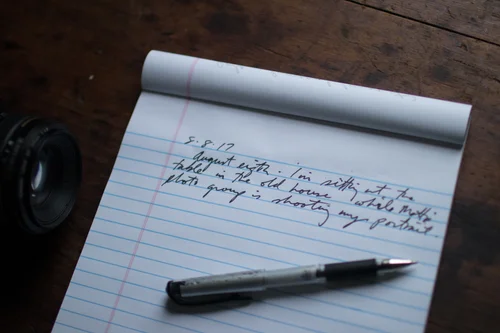 8.8.17
August eighth. I'm sitting at the
table in the old house while
photo group is shooting my portrait.